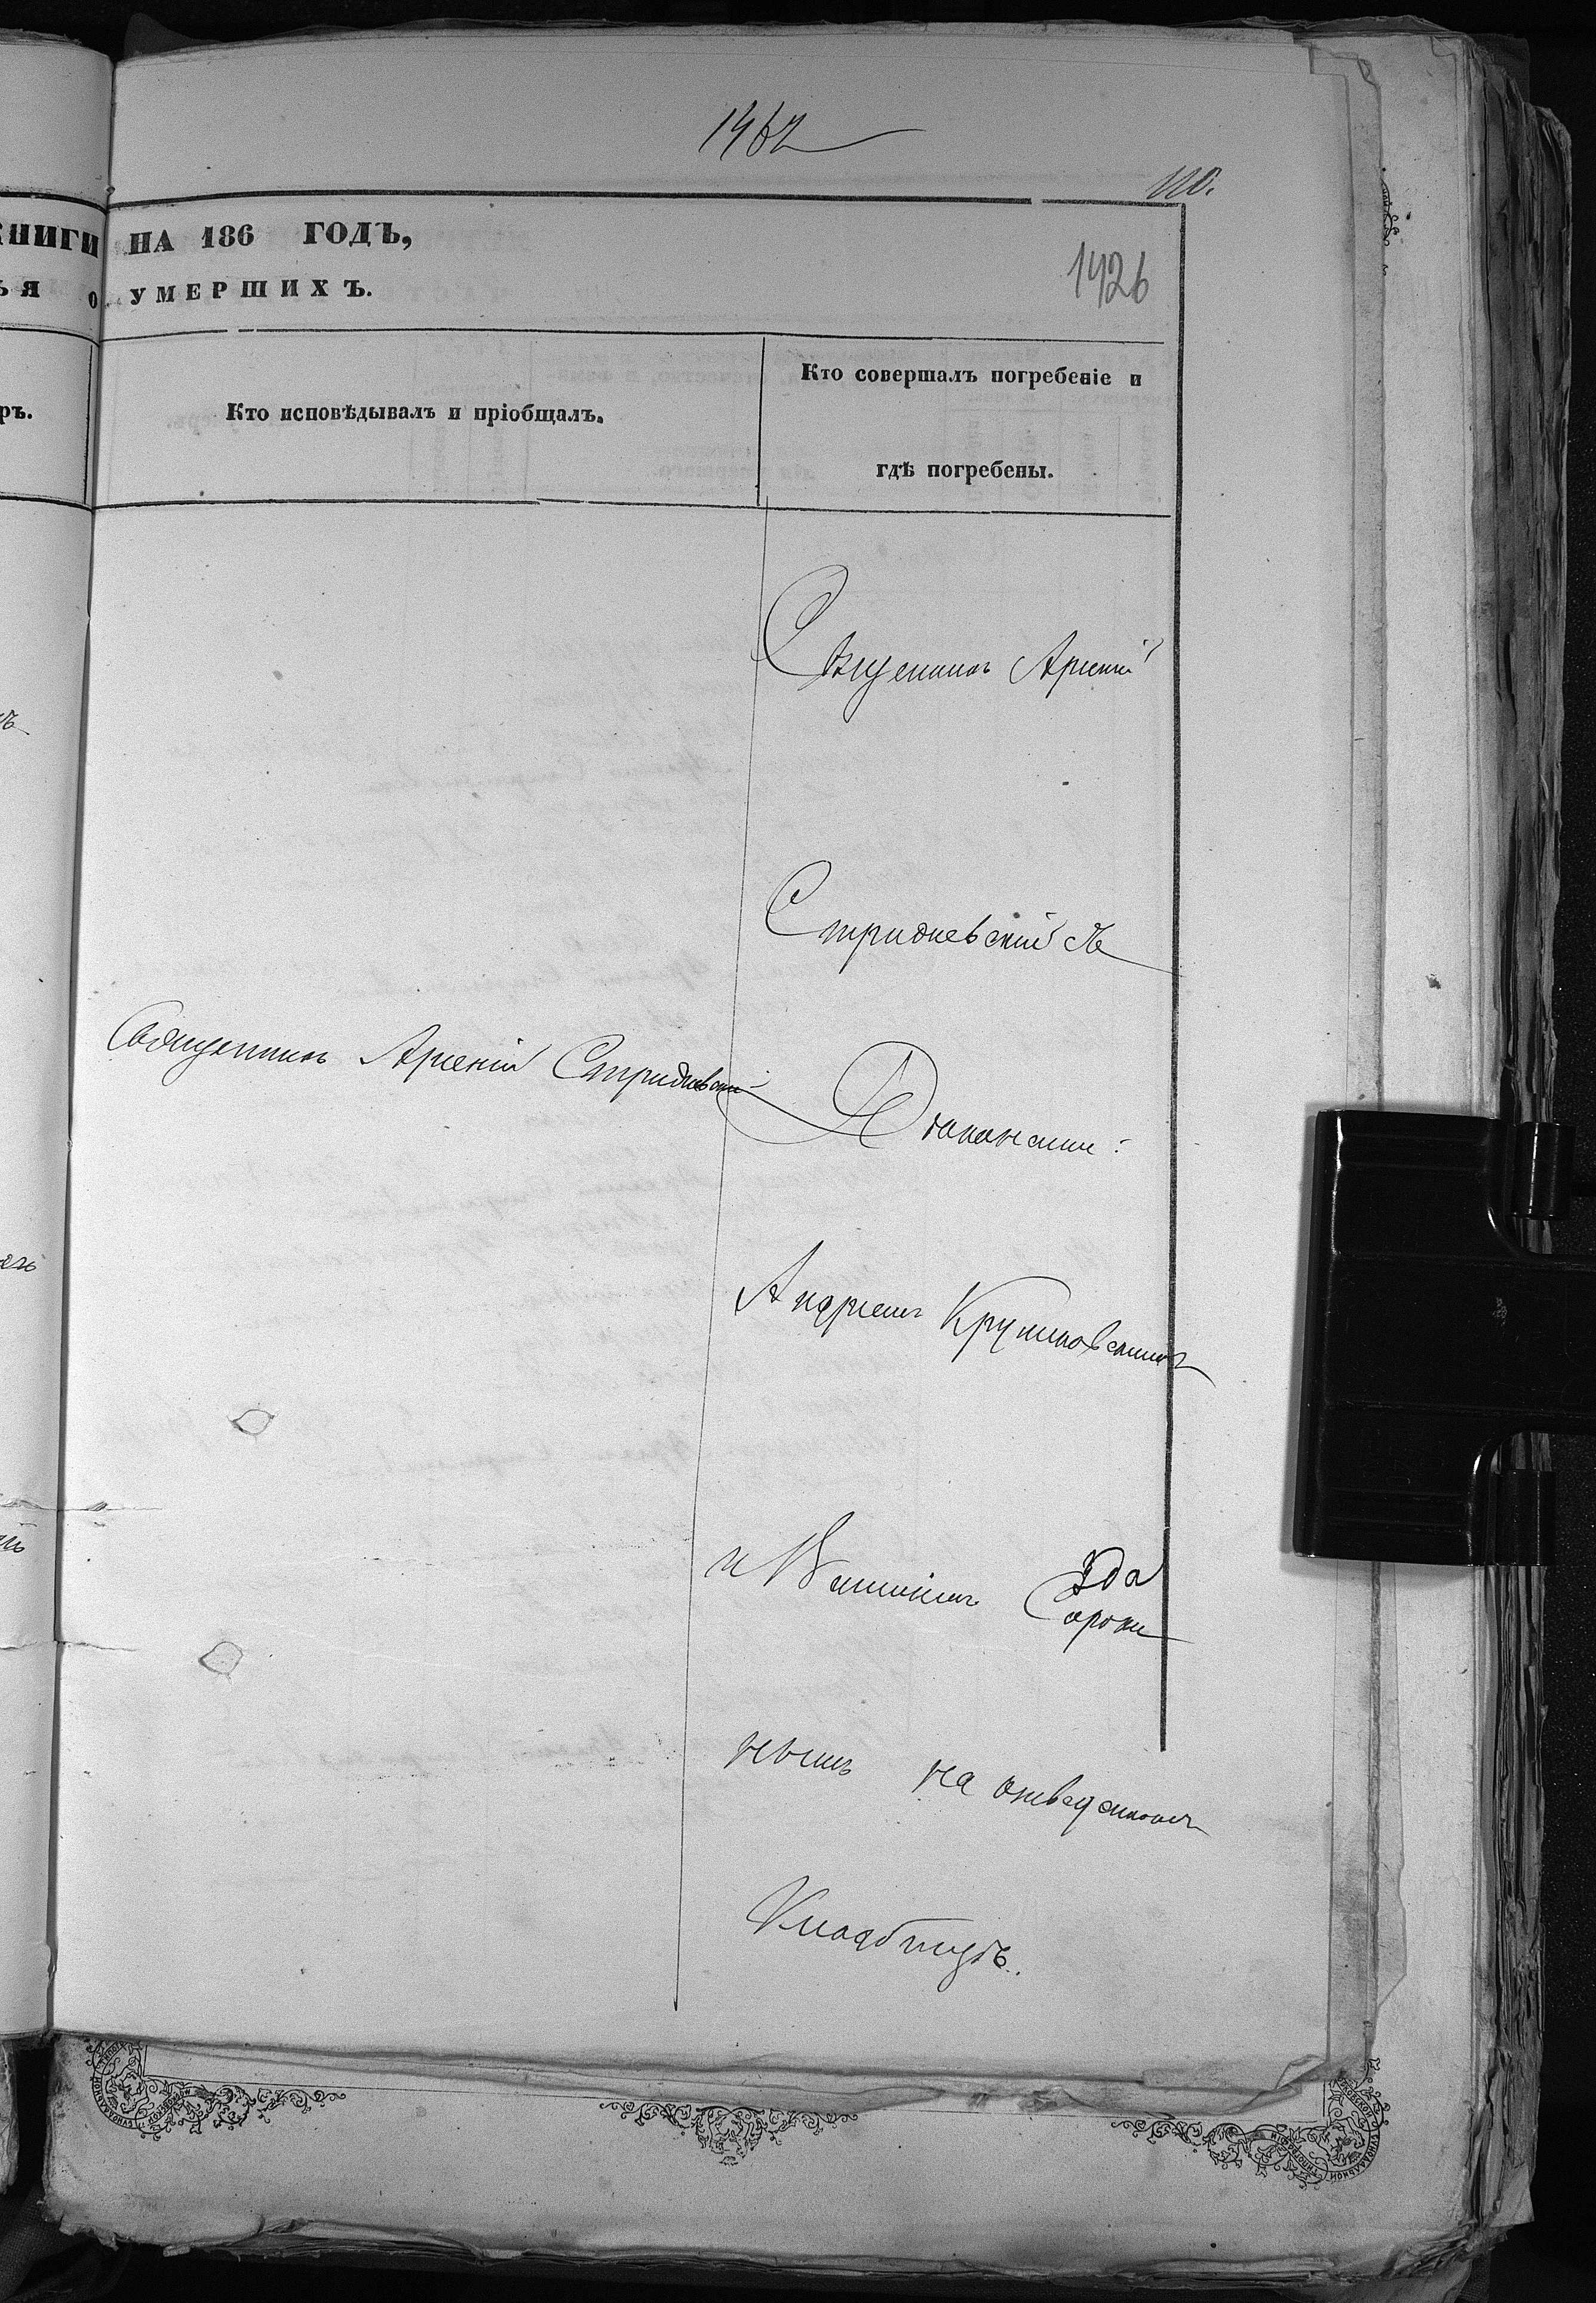 1462
110.
КНИГИ НА 186 ГОДЪ,
1426
ЬЯ О УМЕРШИХЪ.
ръ.
Кто исповѣдывалъ и пріобщалъ.
Кто совершалъ погребеніе и
гдѣ погребены.
Священникъ Арсеній
Стридневскій съ
Священникъ Арсеній Стридневскій
Діаконскими:
Андреемъ
и
на
Кладбищѣ.